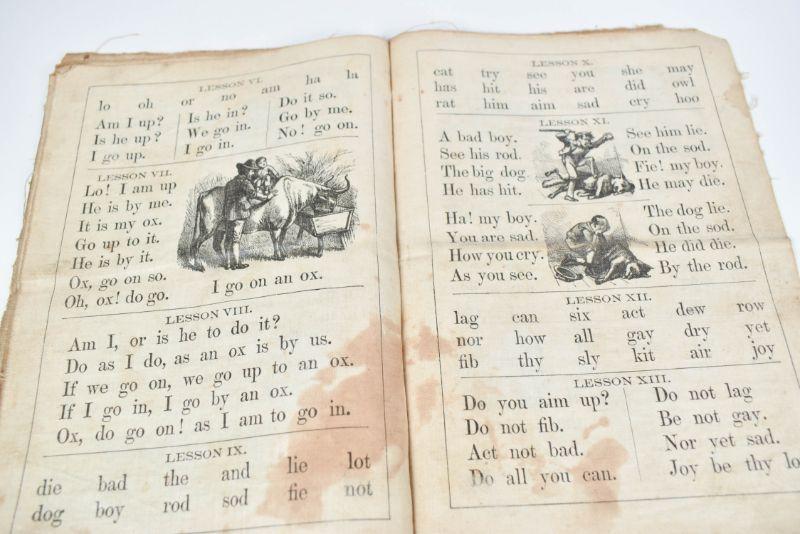 LESSON VI.
lo oh or no am ha la
Am I up?
Is he up?
I go up.
Is he in?
We go in.
I go in.
Do it so.
Go by me.
No! go on.
LESSON VII.
Lo! I am up
He is by me.
It is my ox.
Go up to it.
He is by it.
Ox, go on so.
Oh, ox! do go.
I go on an ox.
LESSON VIII.
Am I, or is he to do it?
Do as I do, as an ox is by us.
If we go on, we go up to an ox.
If I go in, I go by an ox.
Ox, do go on! as I am to go in.
LESSON IX.
die bad the and lie lot
dog boy rod sod fie not
LESSON X.
cat try see you she may
has hit his are did owl
rat him aim sad cry hoo
LESSON XI.
A bad boy.
See his rod.
The big dog
He has hit.
See him lie.
On the sod.
Fie! my boy.
He may die.
Ha! my boy.
You are sad.
How you cry.
As you see.
The dog lie.
On the sod.
He did die.
By the rod.
LESSON XII.
lag can six act dew row
nor how all gay dry yet
fib thy sly kit air joy
LESSON XIII.
Do you aim up?
Do not fib.
Act not bad.
Do all you can.
Do not lag
Be not gay.
Nor yet sad.
Joy be thy lo